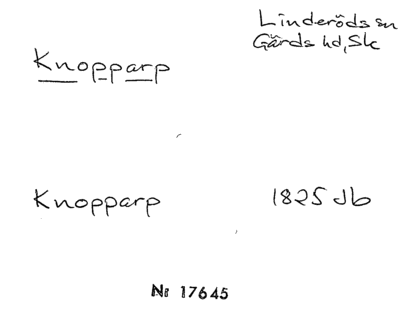 Linderöds sn
Gärds hd, Sk
Knopparp
Knopparp 1825 Jb
Nr 17645